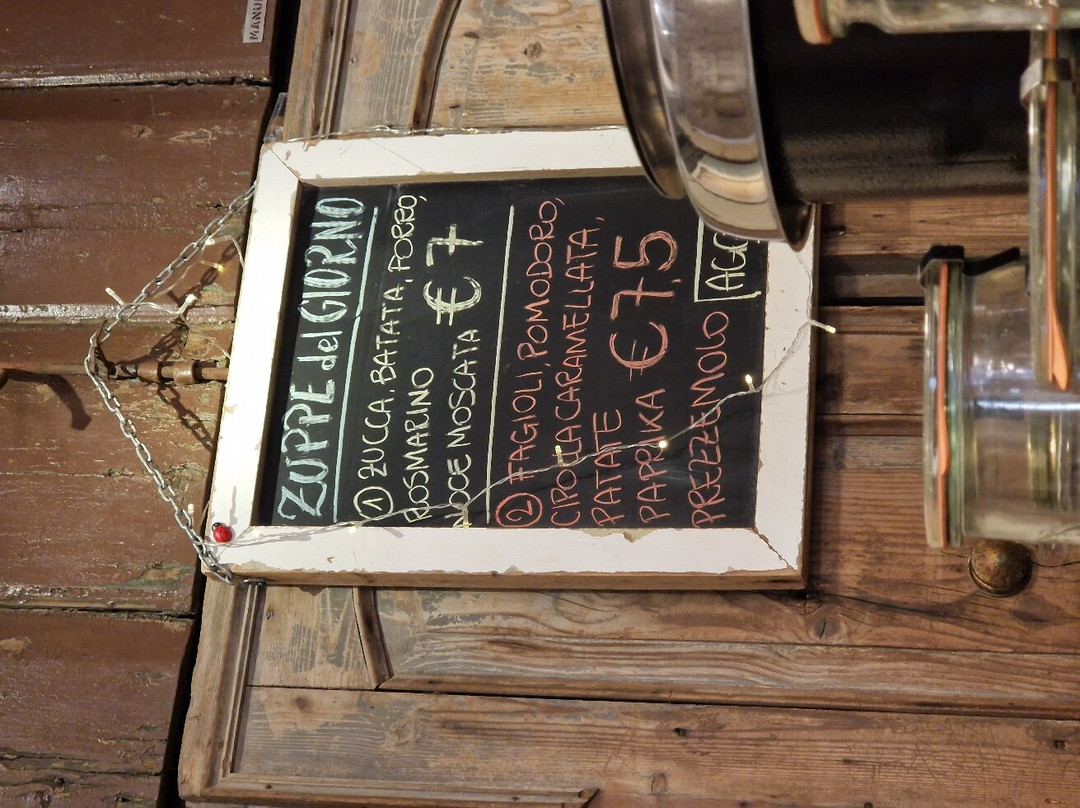 ZUPPE del GIORNO
① ZUCCA, BATATA, PORRO,
ROSMARINO
NOCE MOSCATA € 7
② FAGIOLI, POMODORO,
CIPOLLA CARAMELLATA,
PATATE
PAPRIKA € 7,5
PREZZEMOLO